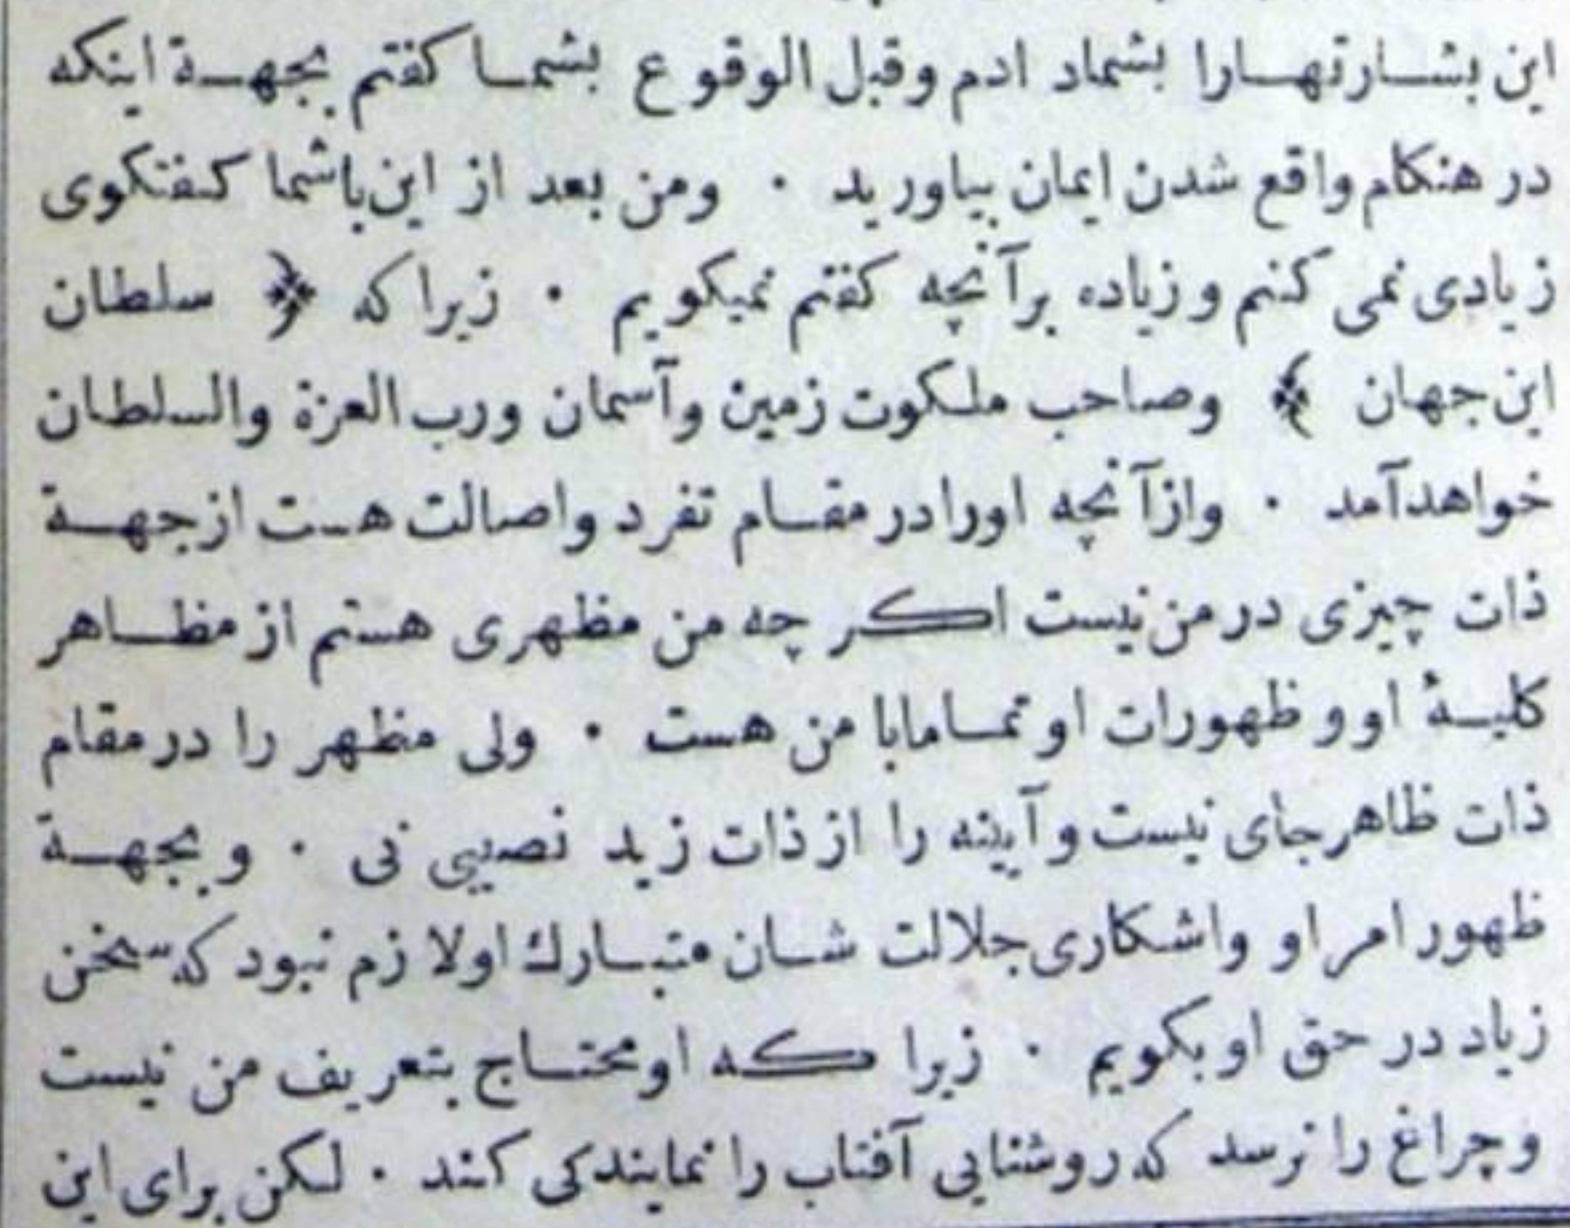 این بشارتهارا بشماد ادم وقبل الوقوع بشما کفتم بجهة اینکه
در هنکام واقع شدن ایمان بیاورید ٠ ومن بعد از این باشما کفتکوی
زیادی نمی کنم وزیاده برآنچه کفتم نمیکویم ٠ زیراکه ﴿ سلطان
این جهان ﴾ وصاحب ملکوت زمین وآسمان ورب العزة والسلطان
خواهدآمد ٠ وازآنچه اورادر مقام تفرد واصالت هست ازجهة
ذات چیزی در من نیست اکر چه من مظهری هستم از مظاهر
کلیهٔ او و ظهورات او تماما با من هست ٠ ولی مظهر را در مقام
ذات ظاهر جای نیست وآیینه را از ذات زید نصیبی نی ٠ وبجهة
ظهور امر او واشکاری جلالت شان متبارك اولا زم نبود که سخن
زیاد در حق او بکویم ٠ زیرا که او محتاج بتعریف من نیست
وچراغ را نرسد که روشنایی آفتاب را نمایندکی کند ٠ لکن برای این